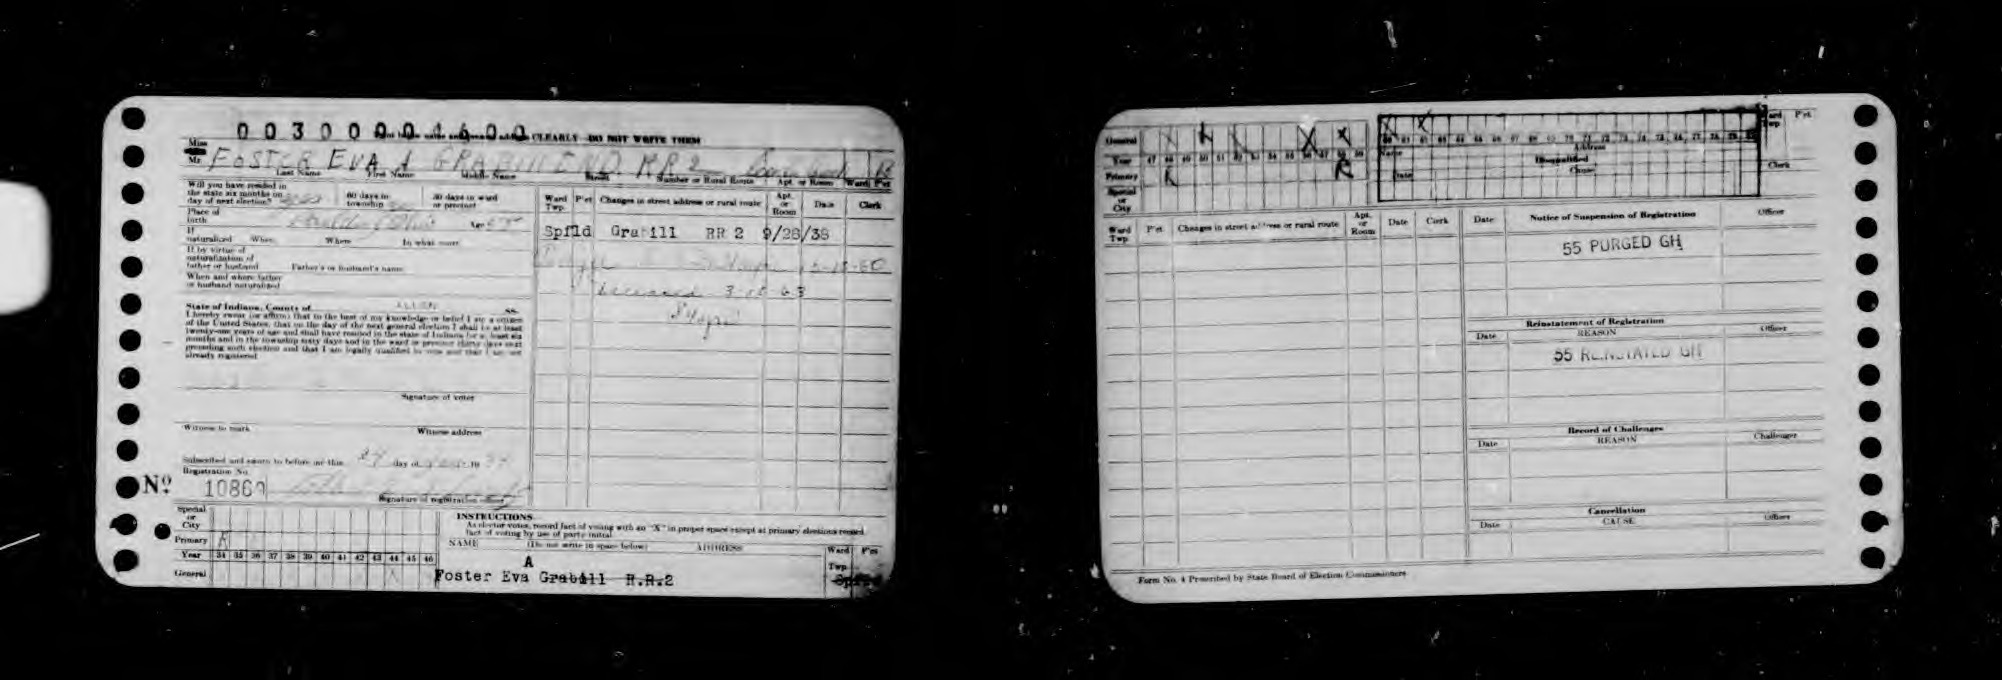 00300004600
CLEARLY DO NOT WRITE THEM
Miss
Mr. FOSTER EVA A GRABILL IND. RR2
Last Name First Name Middle Name Street Number or Rural Route Apt. or Room Ward P'ct
Will you have resided in
the state six months on
day of next election?
60 days in
township
30 days in ward
or precinct
Place of
birth
Age
If
naturalized When Where In what court
If by virtue of
naturalization of
father or husband Father's or husband's name
When and where father
or husband naturalized
State of Indiana, County of ALLEN ss.
I hereby swear (or affirm) that to the best of my knowledge or belief I am a citizen
of the United States, that on the day of the next general election I shall be at least
twenty-one years of age and shall have resided in the state of Indiana for at least six
months and in the township sixty days and in the ward or precinct thirty days next
preceding such election and that I am legally qualified to vote and that I am not
already registered
Signature of voter
Witness to mark Witness address
Subscribed and sworn to before me this 24 day of 19 34
Registration No.
No. 10860
Signature of registration officer
Ward Twp. P'ct Changes in street address or rural route Apt. or Room Date Clerk
Spfld Grabill RR 2 9/28/38
60
Deceased 3 63
Special
or
City
Primary R
Year 34 35 36 37 38 39 40 41 42 43 44 45 46
General X
INSTRUCTIONS
As elector votes, record fact of voting with an "X" in proper space except at primary elections record
fact of voting by use of party initial.
NAME (Do not write in space below) ADDRESS Ward P'ct
Twp.
A
Foster Eva Grabill R.R.2 Spfld
General X X
Year 47 48 49 50 51 52 53 54 55 56 57 58 59
Primary R R
Special
or
City
X X
60 61 62 63 64 65 66 67 68 69 70 71 72 73 74 75 76 77 78 79
Name Address
Disqualified
Date Cause
Ward
Twp. P'ct
Clerk
Ward
Twp. P'ct Changes in street address or rural route Apt. or Room Date Clerk
Date Notice of Suspension of Registration Officer
55 PURGED GH
Reinstatement of Registration
Date REASON Officer
55 REINSTATED GH
Record of Challenges
Date REASON Challenger
Cancellation
Date CAUSE Officer
Form No. 4 Prescribed by State Board of Election Commissioners